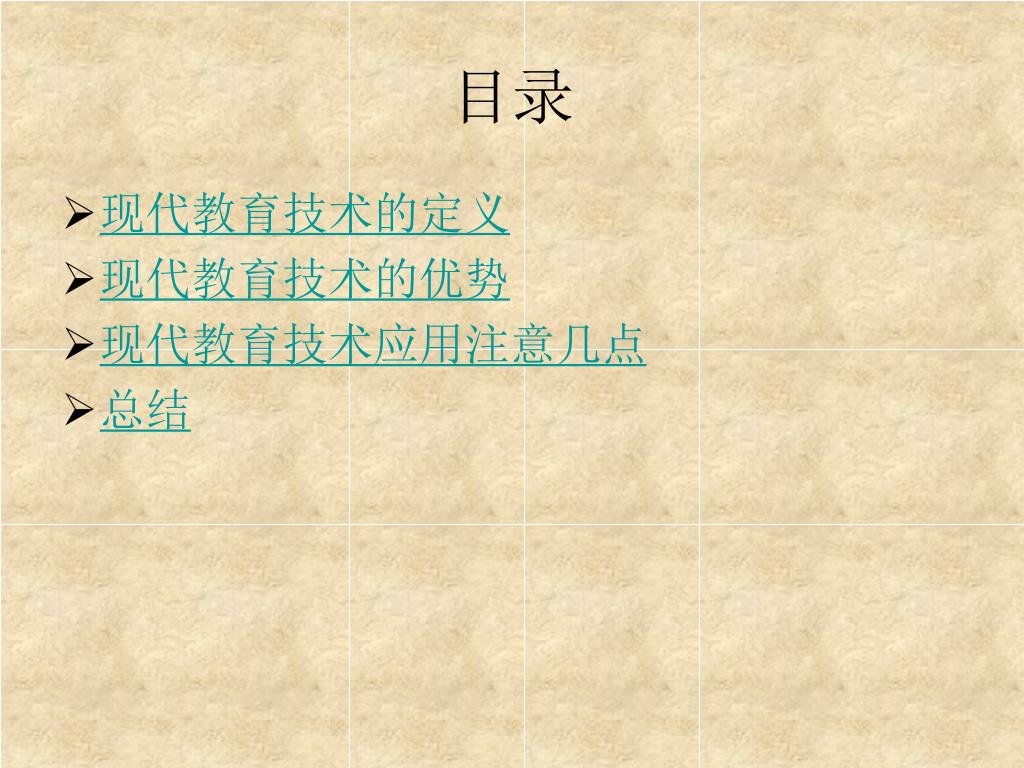 目录
现代教育技术的定义
现代教育技术的优势
现代教育技术应用注意几点
总结